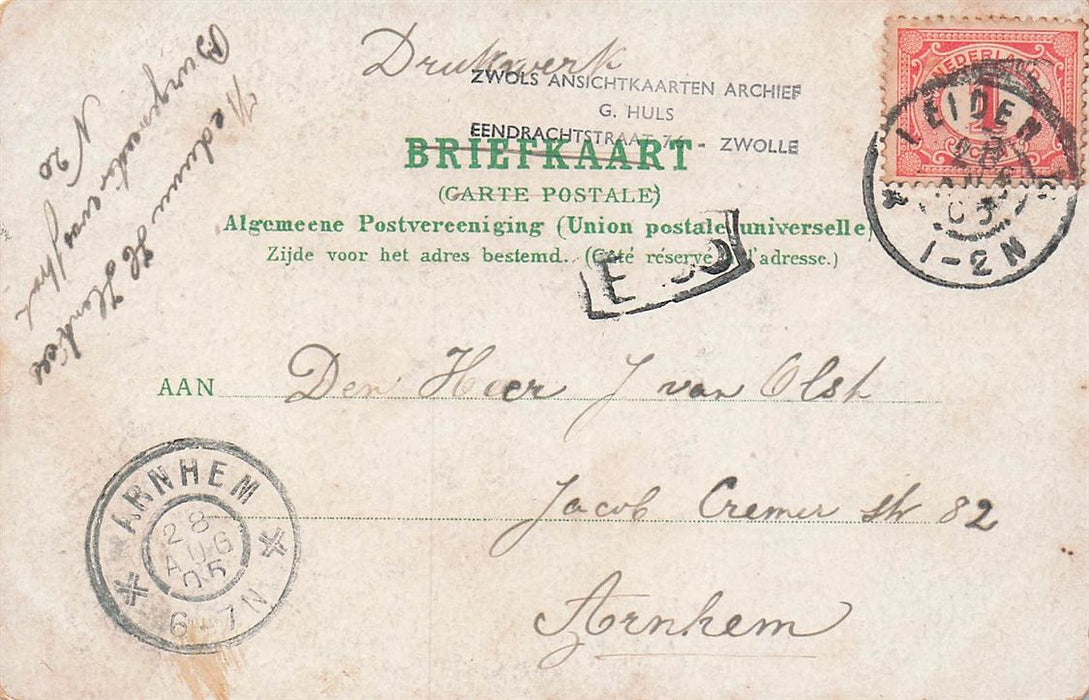 Drukwerk
ZWOLS ANSICHTKAARTEN ARCHIEF
G. HULS
EENDRACHTSTRAAT 76 - ZWOLLE
BRIEFKAART
(CARTE POSTALE)
Algemeene Postvereeniging (Union postale universelle)
Zijde voor het adres bestemd. (Côté réservé l'adresse.)
NEDERLAND
1
LEIDEN
05
1-2 N
N 20
AAN Den Heer J van Olst
Jacob Cremer str 82
Arnhem
ARNHEM
28
AUG
05
6-7N